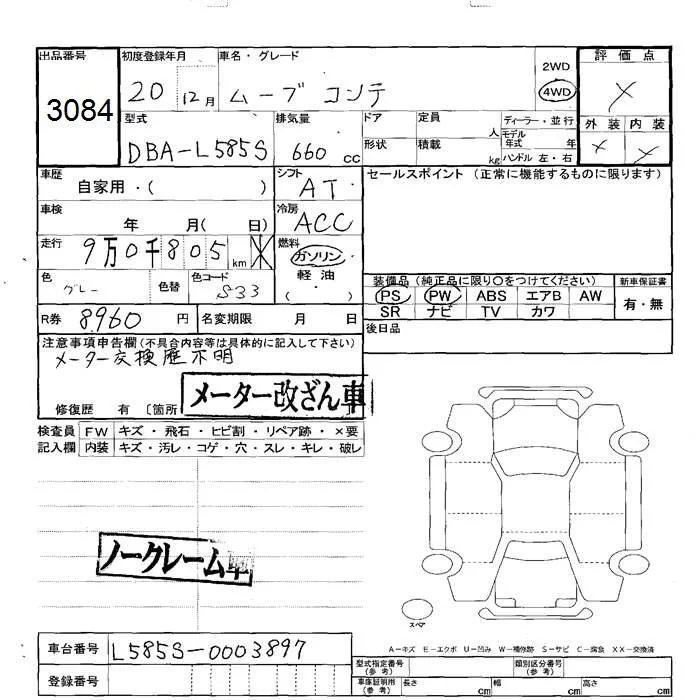 出品番号
3084
初度登録年月
20 12月
車名・グレード
ムーブ コンテ
2WD
4WD
評価点
×
型式
DBA-L585S
排気量
660 cc
ドア
定員
人
形状
積載
kg
ディーラー・並行
モデル年式 年
ハンドル 左・右
外装 内装
× ×
車歴
自家用・( )
シフト
AT
セールスポイント (正常に機能するものに限ります)
車検
年 月( 日)
冷房
ACC
走行
9万0千805 km
燃料
ガソリン
軽油
( )
色
グレー
色替
色コード
S33
装備品 (純正品に限り○をつけてください)
PS PW ABS エアB AW
SR ナビ TV カワ
新車保証書
有・無
R券 8960 円
名変期限 月 日
後日品
注意事項申告欄(不具合内容等は具体的に記入して下さい)
メーター交換歴不明
メーター改ざん車
修復歴 有 〔箇所
検査員記入欄
FW キズ・飛石・ヒビ割・リペア跡・×要
内装 キズ・汚レ・コゲ・穴・スレ・キレ・破レ
ノークレーム車
スペア
A−キズ E−エクボ U−凹み W−補修跡 S−サビ C−腐食 XX−交換済
車台番号 L585S-0003897
登録番号
型式指定番号(参考)
類別区分番号(参考)
車庫証明用(参考) 長さ cm 幅 cm 高さ cm